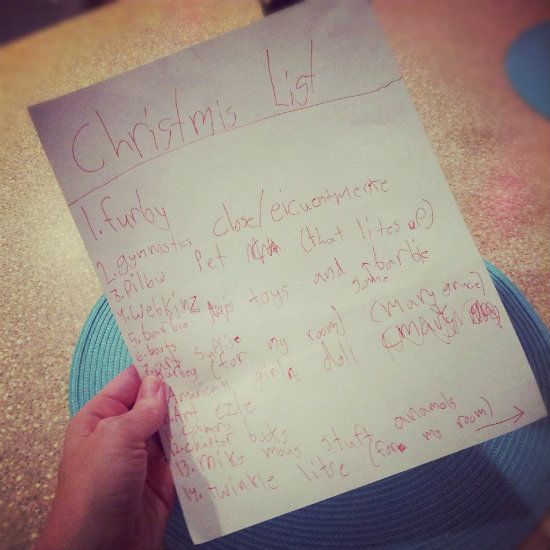 Christmis List
1. furby
2. gymnastics close/eicuontmente
3. Pillow Pet (that lites up)
4. Webkinz
5. barbie toys and barbie game
6. boots
7. art suplise
(for my room) (mary grace)
American girls doll
Art ezle
camra
12. chaapter books
13. Miks mous stuft anamols
14. twinkle lite (for my room)